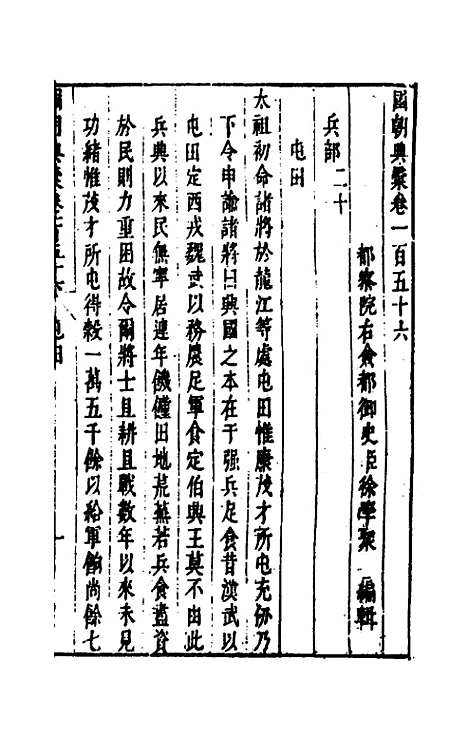 國朝典彙卷一百五十六
都察院右僉都御史臣徐學聚 編輯
兵部二十
屯田
太祖初命諸將於龍江等處屯田惟康茂才所屯充仞乃
下令申諭諸將曰興國之本在于强兵足食昔漢武以
屯田定西戎魏武以務農足軍食定伯興王莫不由此
兵興以來民無寧居連年饑饉田地荒蕪若兵食盡資
於民則力重困故令爾將士且耕且戰數年以來未見
功緒惟茂才所屯得穀一萬五千餘以給軍餉尚餘七
國朝典彙卷一百五十六 屯田 一